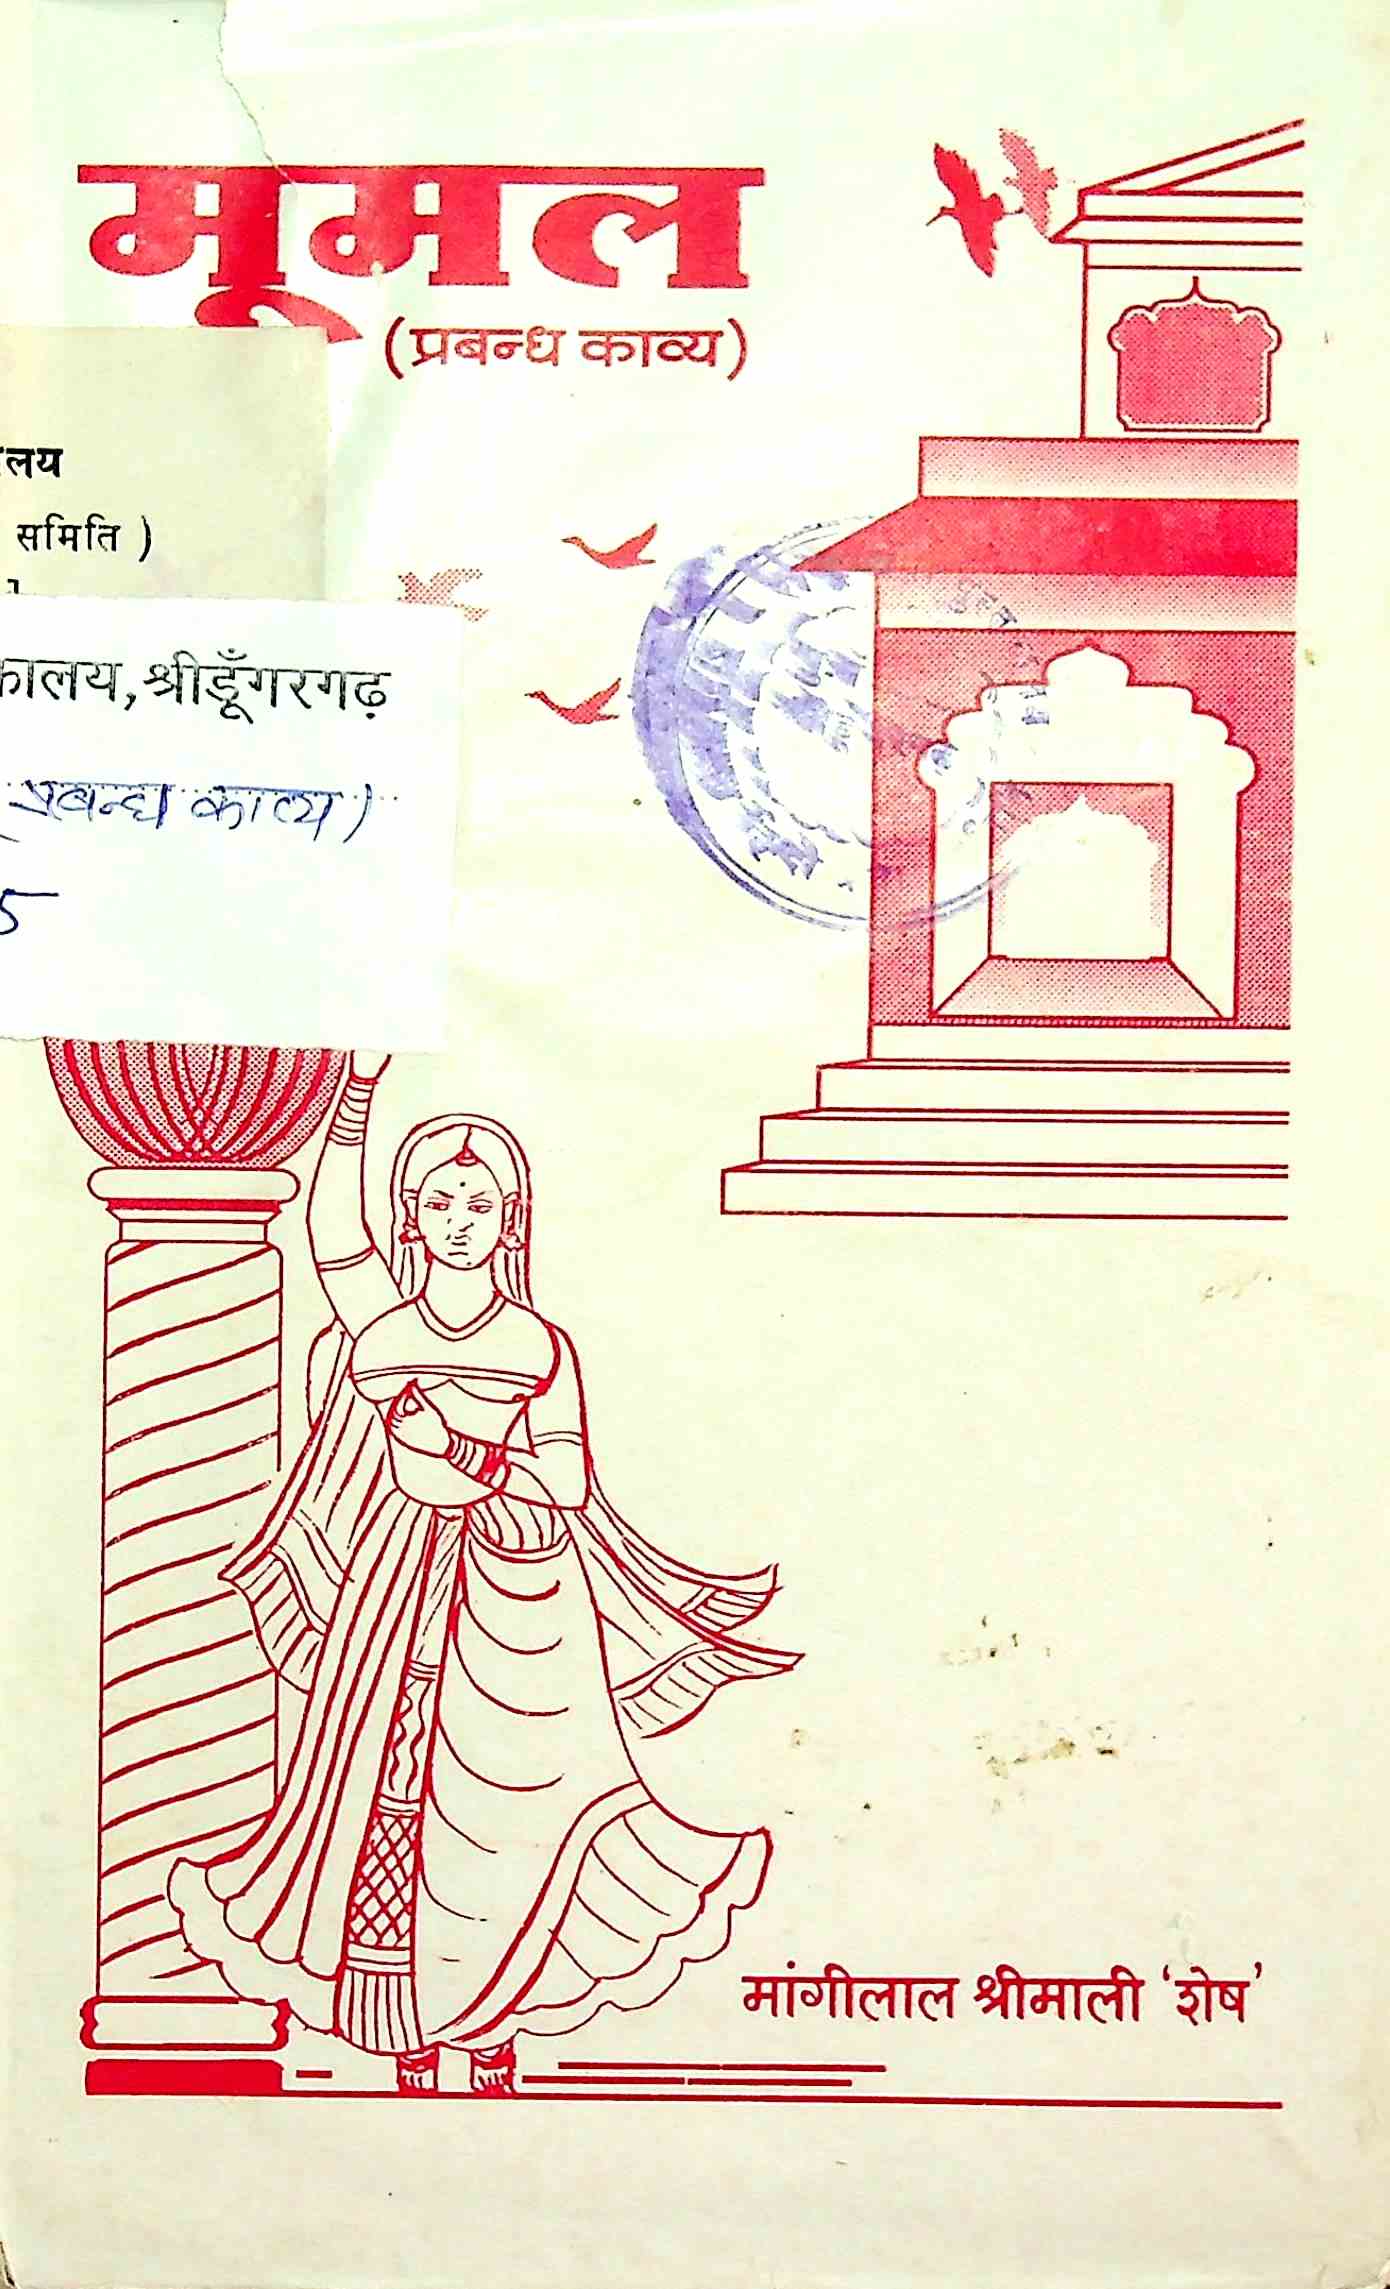 मूमल
(प्रबन्ध काव्य)
समिति )
श्रीडूँगरगढ़
प्रबन्ध काव्य)
मांगीलाल श्रीमाली ‘शेष’